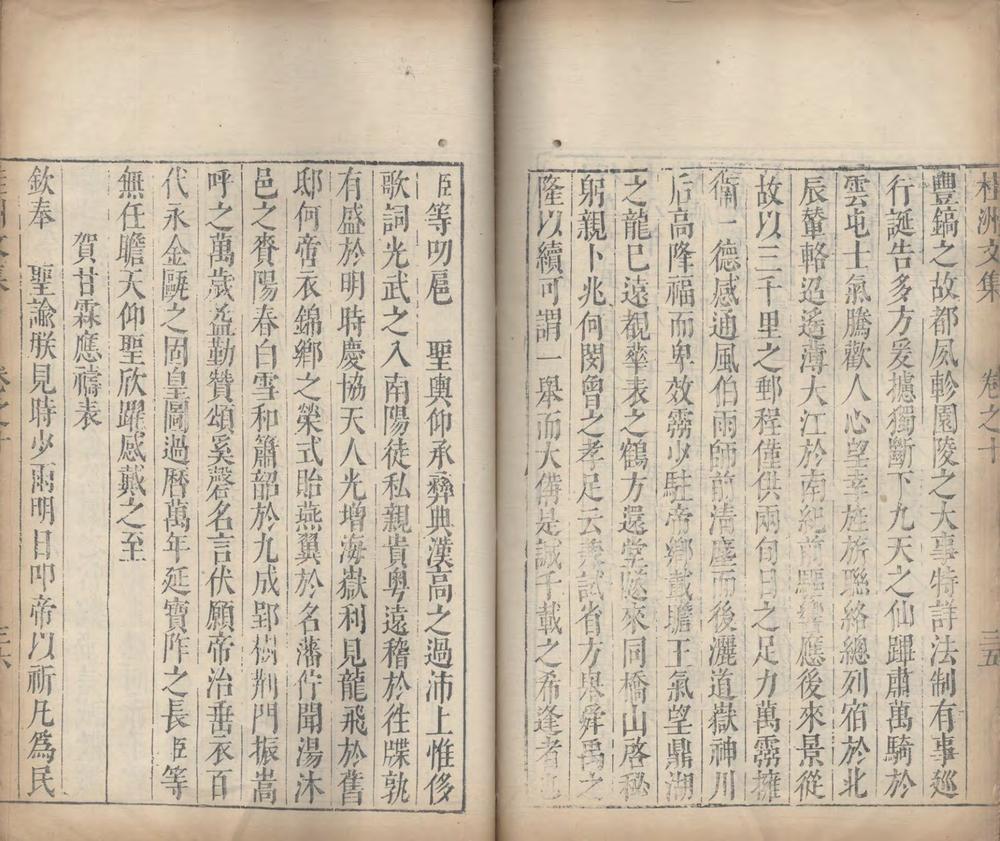 桂洲文集 卷之十 三五
豐鎬之故都夙軫園陵之大事特詳法制有事廵
行誕告多方爰攄獨斷下九天之仙蹕肅萬騎於
雲屯士氣騰歡人心望幸旌旂聯絡總列宿於北
辰輦輅迢遥薄大江於南紀前驅響應後來景從
故以三千里之郵程僅供兩旬日之足力萬靈擁
衞一德感通風伯雨師前清塵而後灑道嶽神川
后高降福而卑效靈少駐帝鄉載瞻王氣望鼎湖
之龍已遠覩華表之鶴方還堂𨓏來同橋山啓秘
躬親卜兆何閔曾之孝足云兼試省方舉舜禹之
隆以續可謂一舉而大俻是誠千載之希逢者也
臣等叨扈 聖輿仰承彝典漢高之過沛上惟侈
歌詞光武之入南陽徒私親貴粤遠稽於徃牒孰
有盛於明時慶協天人光增海嶽利見龍飛於舊
邸何啻衣錦鄉之榮式貽燕翼於名藩佇聞湯沐
邑之賚陽春白雪和簫韶於九成郢樹荆門振嵩
呼之萬歲盍勒贊頌奚罄名言伏願帝治垂衣百
代永金甌之固皇圖過曆萬年延寶阼之長臣等
無任瞻天仰聖欣躍感戴之至
賀甘霖應禱表
欽奉 聖諭朕見時少雨明日叩帝以祈凡爲民